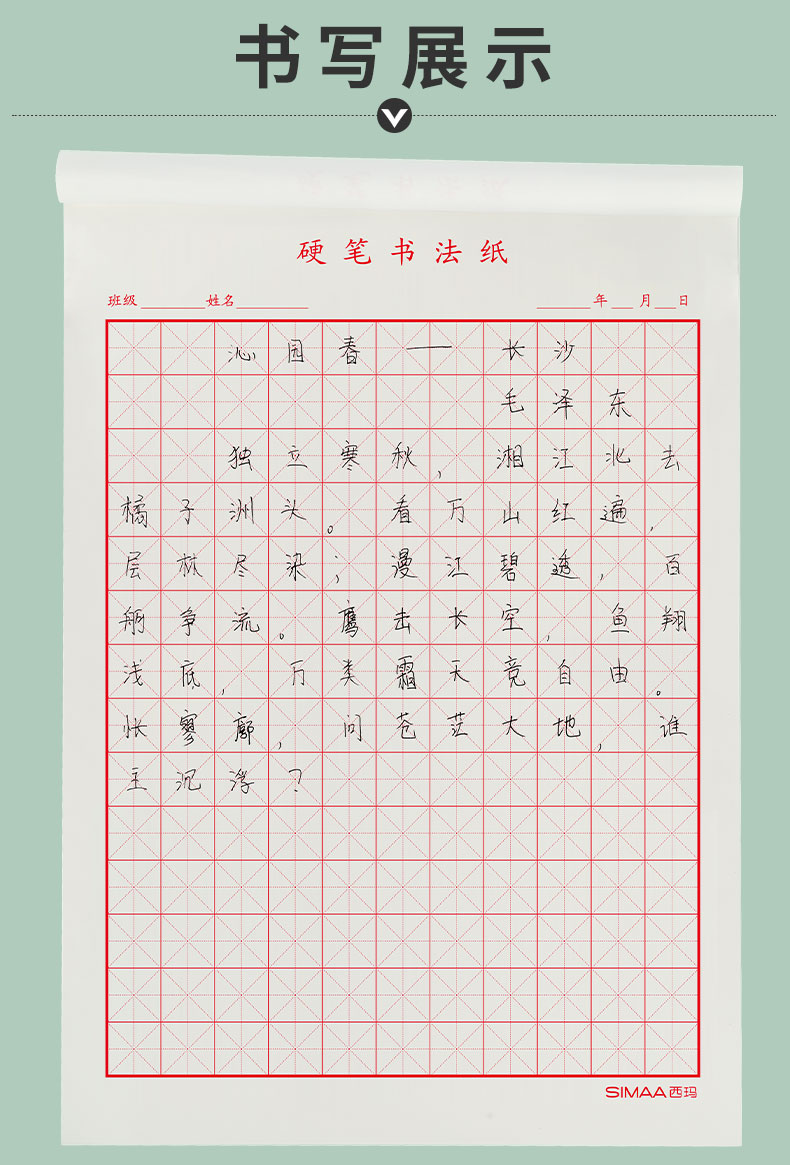 书写展示
硬笔书法纸
班级 姓名 年 月 日
沁园春——长沙
毛泽东
独立寒秋，湘江北去
橘子洲头。看万山红遍，
层林尽染；漫江碧透，百
舸争流。鹰击长空，鱼翔
浅底，万类霜天竞自由。
怅寥廓，问苍茫大地，谁
主沉浮？
SIMAA西玛